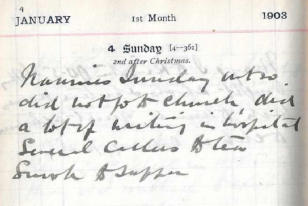 4
JANUARY 1st Month 1903
4 Sunday [4—361]
2nd after Christmas.
Sunday
did not go to church, did
a lot of writing in hospital
Several Callers to tea
to supper